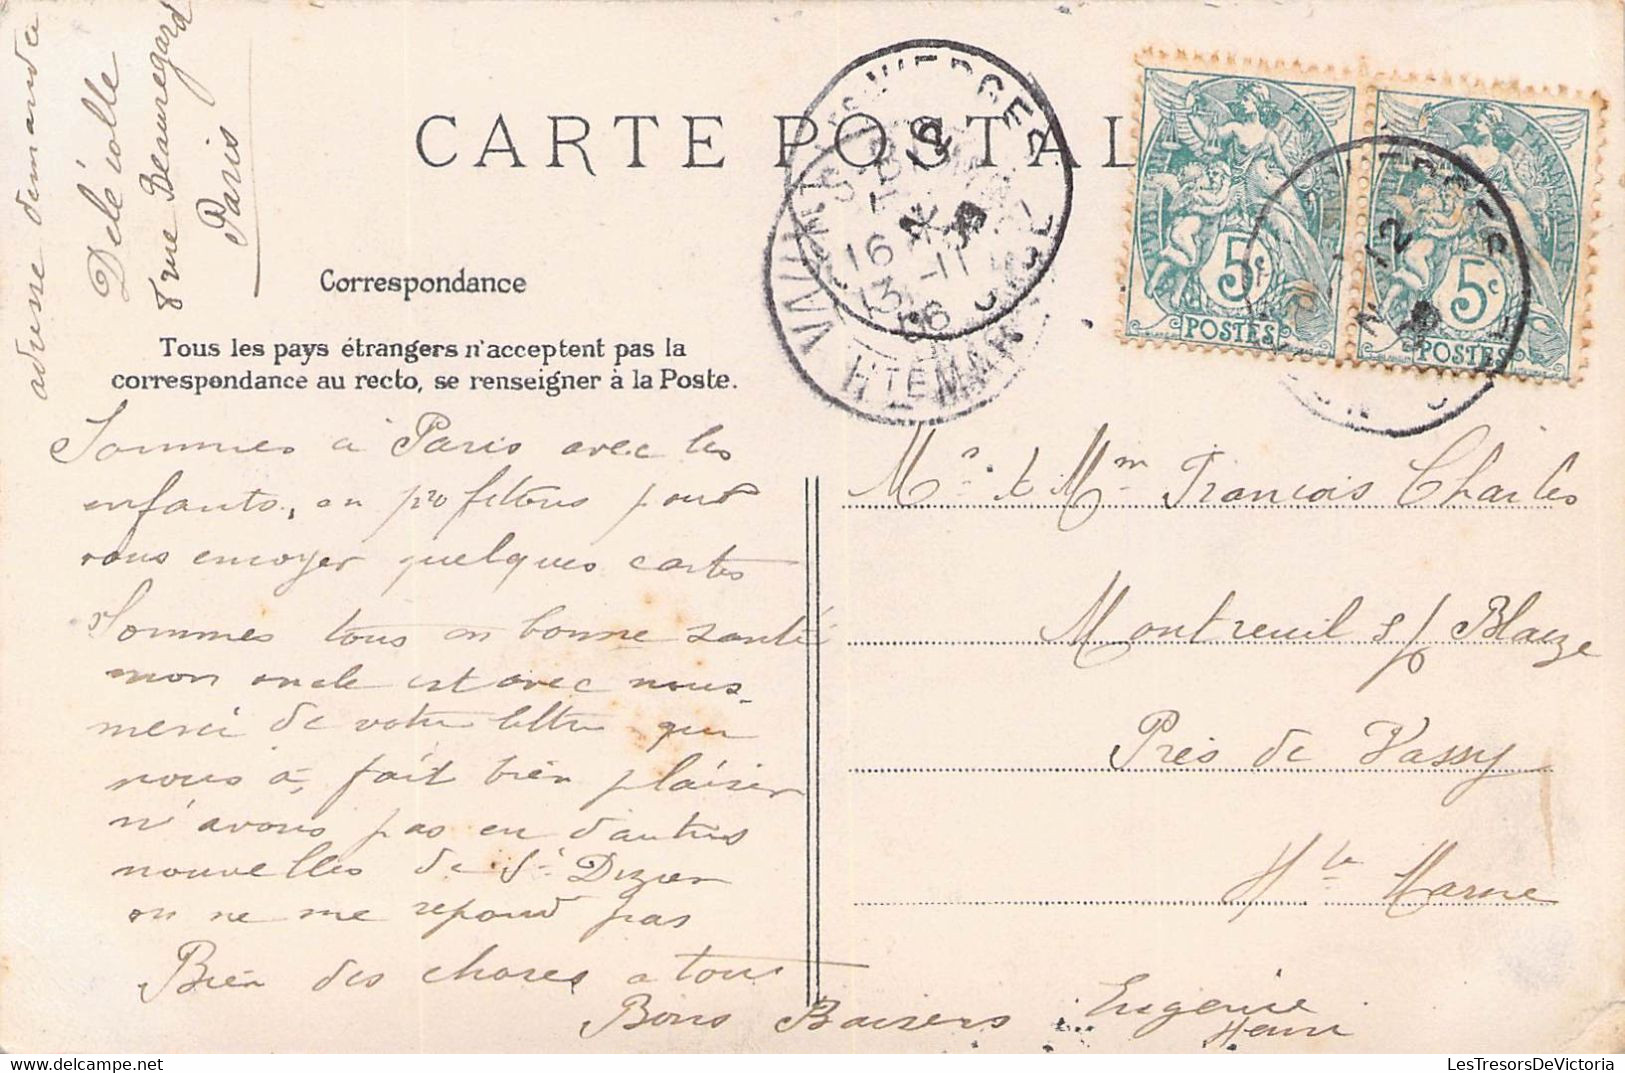 adresse demandée
Délécolle
8 rue Beauregard
Paris
CARTE POSTAL
Correspondance
Tous les pays étrangers n'acceptent pas la
correspondance au recto, se renseigner à la Poste.
Sommes à Paris avec les
enfants, en profitons pour
vous envoyer quelques cartes
Sommes tous en bonne santé
mon oncle est avec nous.
merci de votre lettre qui
nous à, fait bien plaisir
n'avons pas eu d'autres
nouvelles de St Dizier
on ne me repond pas
Bien des choses a tous
Bons Baisers Eugenie
Henri
Mr & Mm François Charles
Montreuil s/ Blaize
Près de Vassy
Hte Marne
16
13 -11
06
HTE MARNE
12
5c
POSTES
5c
POSTES
12
LesTresorsDeVictoria.com